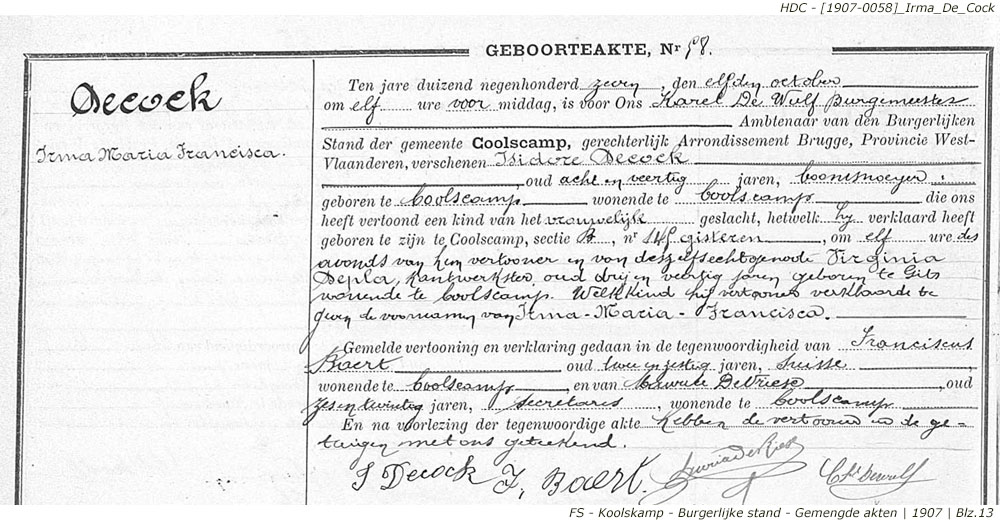 HDC - [1907-0058]_Irma_De_Cock
GEBOORTEAKTE, Nr 58.
Decock
Irma Maria Francisca.
Ten jare duizend negenhonderd zeven, den elfden october
om elf ure voor middag, is voor Ons Karel De Wulf Burgemeester
Ambtenaar van den Burgerlijken
Stand der gemeente Coolscamp, gerechterlijk Arrondissement Brugge, Provincie West-
Vlaanderen, verschenen Isidore Decock
, oud acht en veertig jaren,
geboren te Coolscamp wonende te Coolscamp die ons
heeft vertoond een kind van het vrouwelijk geslacht, hetwelk hij verklaard heeft
geboren te zijn te Coolscamp, sectie B, nr 145 gisteren, om elf ure des
avonds van hem vertooner en van deszelfs echtgenoote Virginia
Depla, kantwerkster, oud drij en veertig jaren geboren te Gits
wonende te Coolscamp. Welk kind hij vertooner verklaarde te
geven de voornamen van Irma-Maria-Francisca.
Gemelde vertooning en verklaring gedaan in de tegenwoordigheid van Franciscus
Baert oud twee en zestig jaren, suisse
wonende te Coolscamp, en van Maurits DeVriese, oud
zes en twintig jaren, secretaris, wonende te Coolscamp
En na voorlezing der tegenwoordige akte hebben de vertooner en de ge-
tuigen met ons geteekend.
I Decock F. Baert.
FS - Koolskamp - Burgerlijke stand - Gemengde akten | 1907 | Blz.13